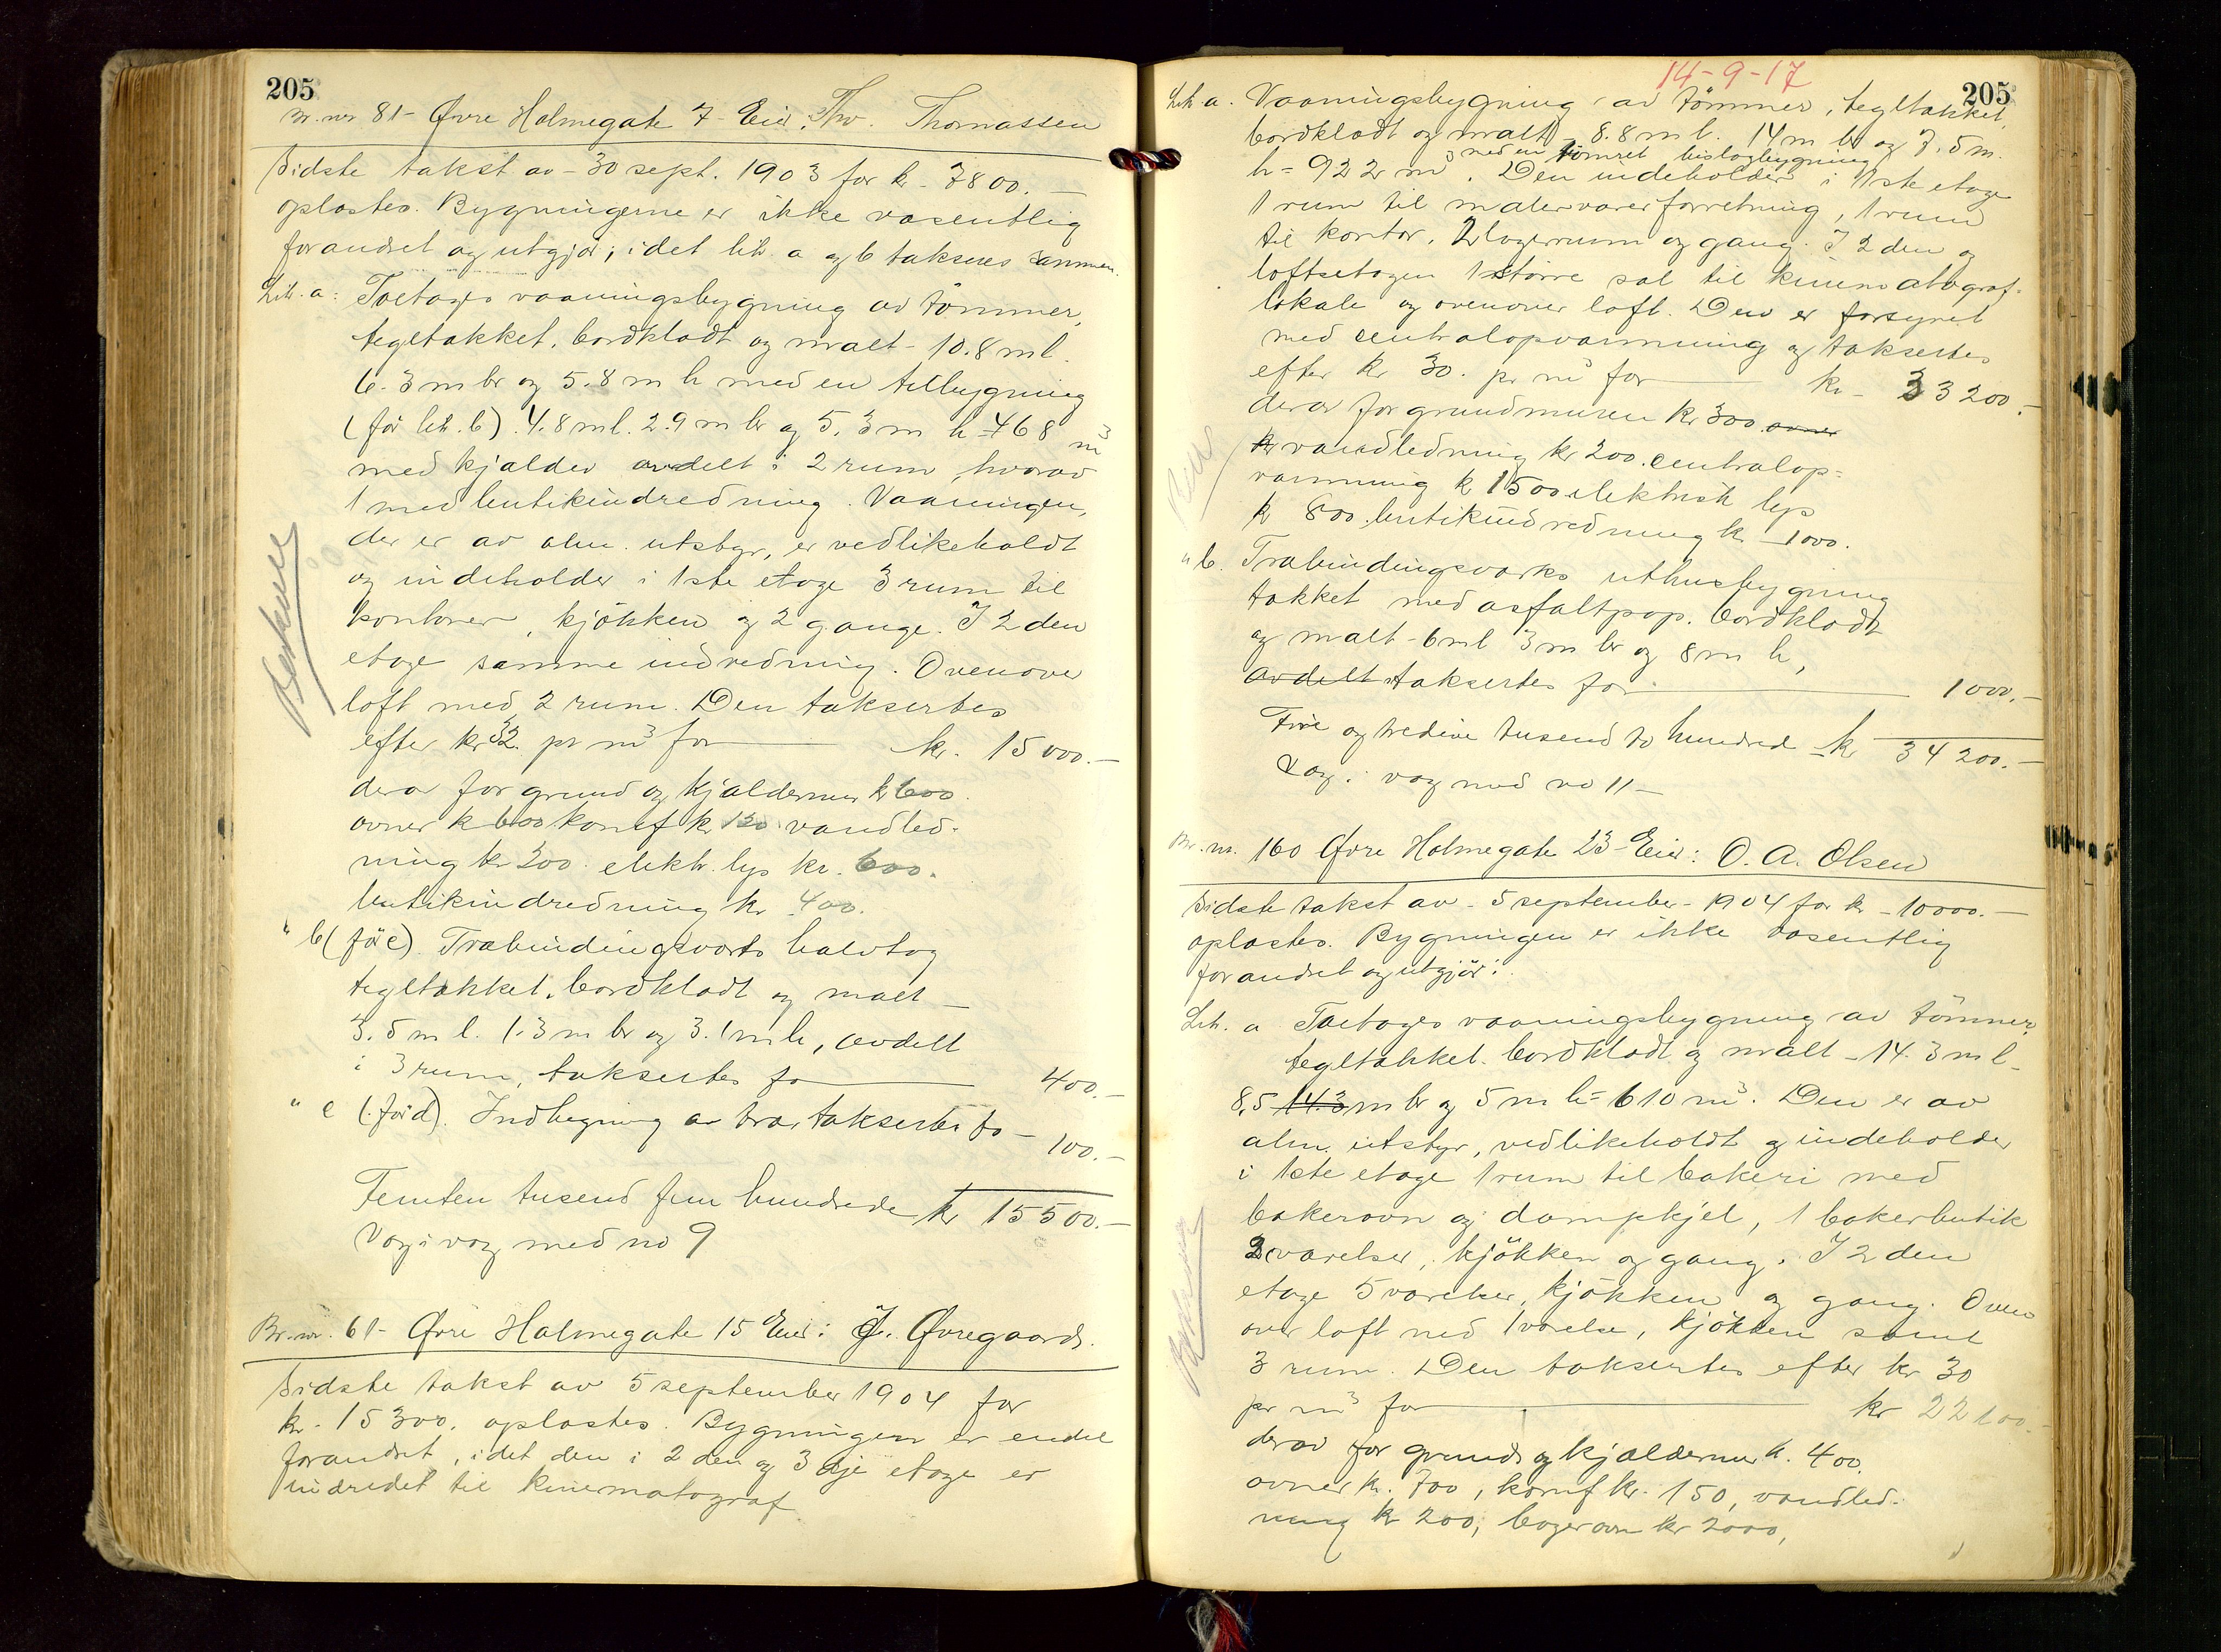 205
Br. nr 81 - Øvre Holmegate 7 - Eier: Thv. Thomassen
Sidste takst av - 30 sept. 1903 for kr - 7800. -
oplæstes. Bygningerne er ikke væsentlig
forandret og utgjør; idet litr. a og b takseres sammen.
Litr. a: Toetages vaaningsbygning av tömmer,
tegltækket, bordklædt og malt - 10.8 m l.
6.3 m br og 5.8 m h med en tilbygning
(för litr. b). 4.8 m l. 2.9 m br og 5.3 m h = 468 m³
med kjælder avdelt i 2 rum, hvorav
1 med butikindredning. Vaaningen,
der er av alm. utstyr, er vedlikeholdt
og indeholder i 1ste etage 3 rum til
kontorer, kjökken og 2 gange. I 2den
etage samme indredning. Ovenover
loft med 2 rum. Den taksertes
efter kr 32. pr m³ for kr. 15 000. -
derav for grund og kjældermur kr 600.
ovner kr 600 komf kr 150 vandled-
ning kr 300. elektr. lys kr. 600.
butikindredning kr 400.
" b (för c). Træbindingsverks halvtag
tegltækket, bordklædt og malt -
3.5 m l. 1.3 m br og 3.1 m h, avdelt
i 3 rum, taksertes for 400. -
" c (för d). Indhegning av træ, taksertes for - 100. -
Femten tusend fem hundrede kr 15 500. -
Væg i væg med no 9
Br. nr. 61 - Øvre Holmegate 15 Eier: J. Øvregaard.
Sidste takst av 5 september 1904 for
kr. 15300. oplæstes. Bygningen er endel
forandret, idet den i 2den og 3dje etage er
indredet til kinematograf
14-9-17
205
Litr. a. Vaaningsbygning av tömmer, tegltækket,
bordklædt og malt - 8.8 m l. 14 m br og 7.5 m.
med en tömret bislagbygning
h = 922 m³. Den indeholder i 1ste etage
1 rum til malervareforretning, 1 rum
til kontor, 2 lagerrum og gang. I 2den og
loftsetagen 1 större sal til kinematograf-
lokale og ovenover loft. Den er forsynet
med centralopvarmning og taksertes
efter kr 30. pr m³ for kr - 33 200. -
derav for grundmuren kr 300. ovner
kr vandledning kr 200. centralop-
varmning kr 1500 elektrisk lys
kr 800. butikindredning kr 1000.
" b. Træbindingsverks uthusbygning
tækket med asfaltpap. bordklædt
og malt - 6 m l 3 m br og 8 m h,
avdelt taksertes for 1000. -
Fire og tredive tusend to hundred kr 34 200. -
væg med no 11 -
Br. nr. 160 Øvre Holmegate 23 - Eier: O. A. Olsen
Sidste takst av - 5 september - 1904 for kr - 10000. -
oplæstes. Bygningen er ikke væsentlig
forandret og utgjör:
Litr. a Toetages vaaningsbygning av tömmer,
tegltækket. bordklædt og malt - 14.3 m l -
8.5 14.3 m br og 5 m h = 610 m³. Den er av
alm. utstyr, vedlikeholdt og indeholder
i 1ste etage 1 rum til bakeri med
bakerovn og dampkjel, 1 bakerbutik
2 værelser, kjökken og gang. I 2den
etage 5 værelser, kjökken og gang. Oven
over loft med 1 værelse, kjökken samt
3 rum. Den taksertes efter kr 30
pr m³ for kr 22100. -
derav for grund og kjældermur kr. 400.
ovner kr. 700, komf kr. 150, vandled-
ning kr 200, bagerovn kr 2000,